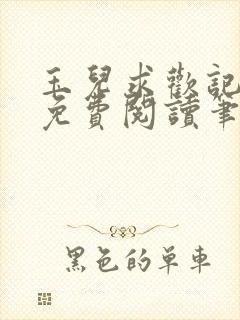 玉兒求歡記
免費閱讀筆
黑色的單車